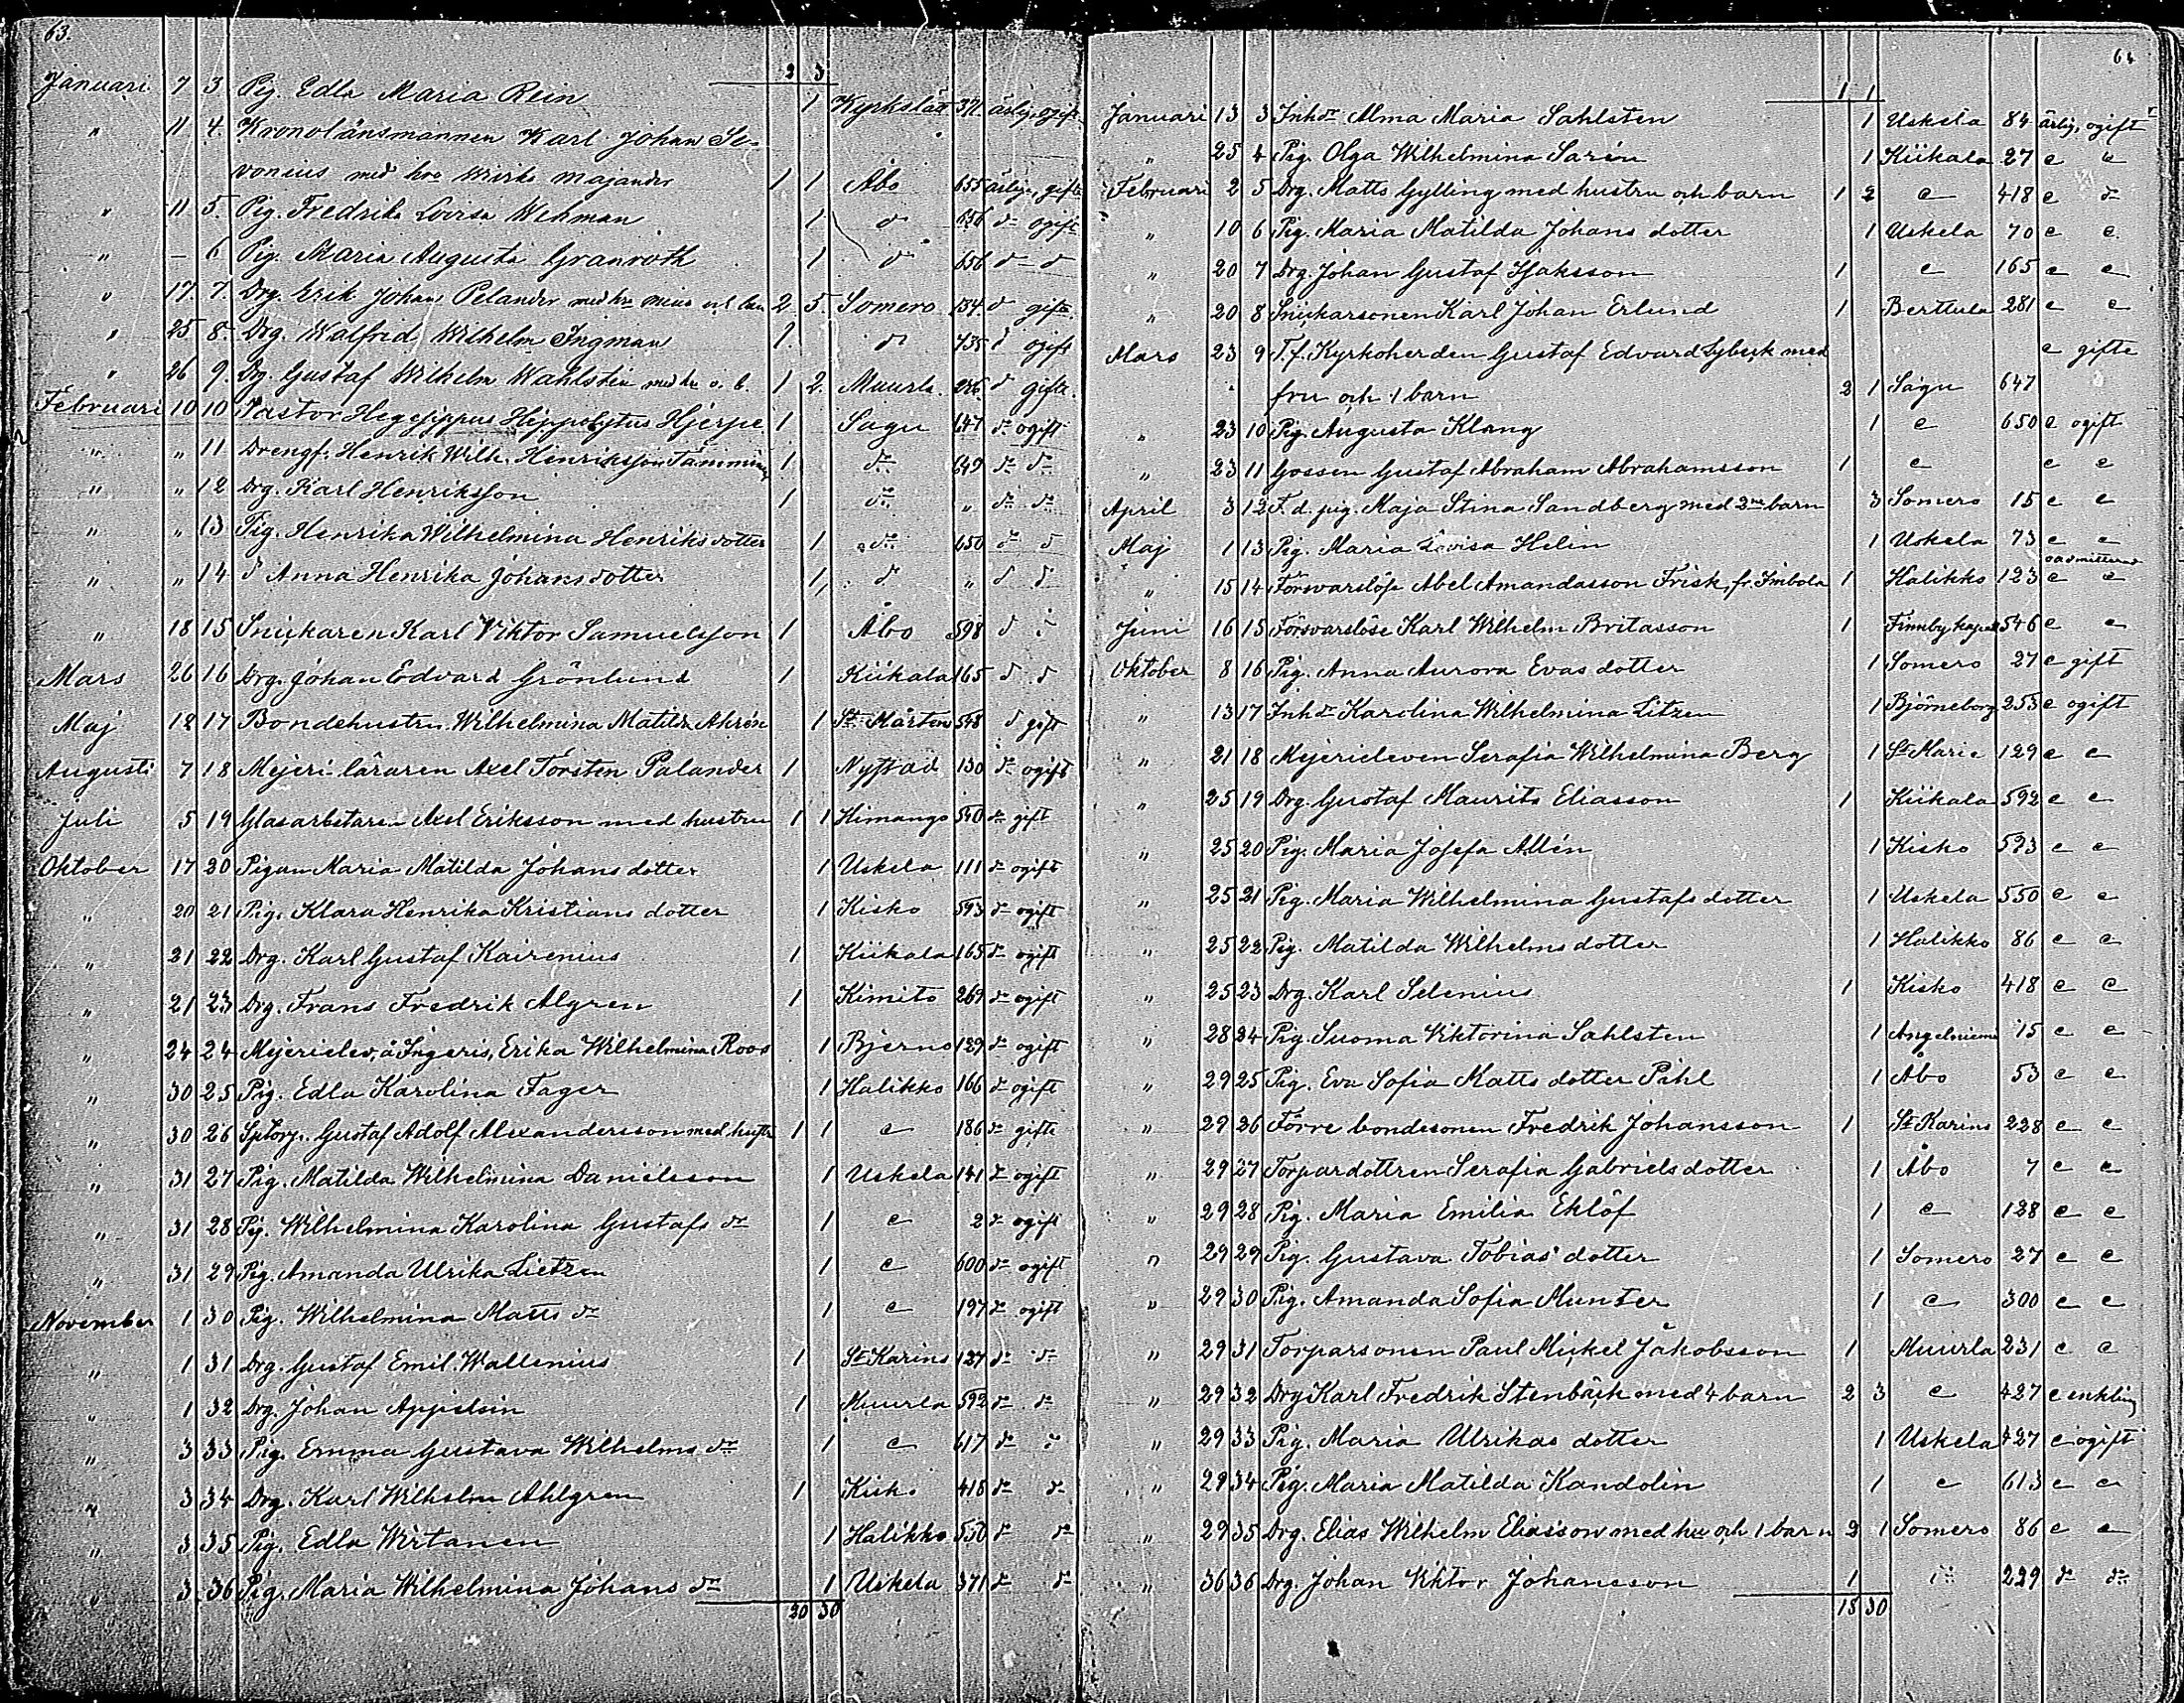 63.
2 3
Januari 7 3 Pig. Edla Maria Rein 1 Kyrkslätt 371 ärlig, ogift
" 11 4. Kronolänsmannen Karl Johan Se-
vonius med hru Mirks Majander 1 1 Åbo 655 ärliga, gifta
" 11 5. Pig. Fredrika Lovisa Wekman 1 d 656 d ogift
" — 6 Pig. Maria Augusta Granroth 1 d 656 d d
" 17. 7. Drg. Erik Johan Pelander med hru 2. 5. Somero 434 d gifta
" 25 8. Drg. Walfrid Wilhelm Ingman 1. d 435 d ogift
" 26 9. Dg. Gustaf Wilhelm Wahlstén med hu o. b. 1 2. Muurla. 236 d gifta.
Februari 10 10 Pastor Hegesippus Hippolytus Hjerpe 1 Sagu 647 d:o ogift
" " 11 Drengf. Henrik Wilh. Henriksson Tamminen 1 d:o 649 d:o d:o
" " 12 Drg. Karl Henriksson 1 d:o " d:o d:o
" " 13 Pig. Henrika Wilhelmina Henriksdotter 1 d:o 650 d:o d
" " 14 d Anna Henrika Johansdotter 1, d " d d
" 18 15 Snickaren Karl Viktor Samuelsson 1 Åbo 598 d d
Mars 26 16 Drg. Johan Edvard Grönlund 1 Kiikala 165 d d
Maj 12 17 Bondehustru Wilhelmina Matilda Ahrén 1 St Mårtens 548 d gift
Augusti 7 18 Mejeri-läraren Axel Torsten Palander 1 Nystad 130 d:o ogift
Juli 5 19 Glasarbetaren Axel Eriksson med hustru 1 1 Himango 540 d:o gift
Oktober 17 20 Pigan Maria Matilda Johansdotter 1 Uskela 111 d:o ogift
" 20 21 Pig. Klara Henrika Kristians dotter 1 Kisko 593 d:o ogift
" 21 22 Drg. Karl Gustaf Kairenius 1 Kiikala 165 d:o ogift
" 21 23 Drg. Frans Fredrik Algren 1 Kimito 269 d:o ogift
" 24 24 Mejerielev, å Ingeris, Erika Wilhelmina Roos 1 Bjerno 129 d:o ogift
" 30 25 Pig. Edla Karolina Fager 1 Halikko 166 d:o ogift
" 30 26 Sptorp. Gustaf Adolf Alexandersson med hustr 1 1 e 186 d:o gifte
" 31 27 Pig. Matilda Wilhelmina Danielsson 1 Uskela 141 d:o ogift
" 31 28 Pig. Wilhelmina Karolina Gustafs d:r 1 e 2 d:o ogift
" 31 29 Pig. Amanda Ulrika Lietzen 1 e 600 d:o ogift
November 1 30 Pig. Wilhelmina Matts d:r 1 e 197 d:o ogift
" 1 31 Drg. Gustaf Emil Wallenius 1 St Karins 127 d:o d:o
" 1 32 Drg. Johan Appelsin 1 Muurla 592 d:o d:o
" 3 33 Pig. Emma Gustava Wilhelms d:r 1 e 617 d:o d:o
" 3 34 Drg. Karl Wilhelm Ahlgren 1 Kisko 418 d:o d:o
" 3 35 Pig. Edla Wirtanen 1 Halikko 550 d:o d:o
" 3 36 Pig. Maria Wilhelmina Johans d:r 1 Uskela 371 d:o d:o
20 30
64
1 1
Januari 13 3 Inhdr Alma Maria Sahlsten 1 Uskela 84 ärlig, ogift
" 25 4 Pig. Olga Wilhelmina Sarén 1 Kiikala 27 e e
Februari 2 5 Drg. Matts Gylling med hustru och barn 1 2 e 418 e d:o
" 10 6 Pig. Maria Matilda Johans dotter 1 Uskela 70 e e
" 20 7 Drg. Johan Gustaf Isaksson 1 e 165 e e
" 20 8 Snickarsonen Karl Johan Erlund 1 Berttula 281 e e
Mars 23 9 T. f. Kyrkoherden Gustaf Edvard Lybeck med e gifte
fru och 1 barn 2 1 Sagu 647
" 23 10 Pig. Augusta Klang 1 e 650 e ogift
" 23 11 Gossen Gustaf Abraham Abrahamsson 1 e e e
April 3 12 F. d. pig. Maja Stina Sandberg med 2ne barn 3 Somero 15 e e
Maj 1 13 Pig. Maria Lovisa Helin 1 Uskela 73 e e
oadmitterad
" 15 14 Försvarslöse Abel Amandasson Frisk, fr. Imbola 1 Halikko 123 e e
Juni 16 15 Försvarslöse Karl Wilhelm Britasson 1 Finnby kapell 546 e e
Oktober 8 16 Pig. Anna Aurora Evas dotter 1 Somero 27 e gift
" 13 17 Inhdr Karolina Wilhelmina Litzen 1 Björneborg 253 e ogift
" 21 18 Mejerieleven Serafia Wilhelmina Berg 1 St Marie 129 e e
" 25 19 Drg. Gustaf Maurits Eliasson 1 Kiikala 592 e e
" 25 20 Pig. Maria Josefa Allén 1 Kisko 593 e e
" 25 21 Pig. Maria Wilhelmina Gustafs dotter 1 Uskela 550 e e
" 25 22 Pig. Matilda Wilhelms dotter 1 Halikko 86 e e
" 25 23 Drg. Karl Selenius 1 Kisko 418 e e
" 28 24 Pig. Suoma Viktorina Sahlsten 1 Angelniemi 15 e e
" 29 25 Pig. Eva Sofia Matts dotter Pihl 1 Åbo 53 e e
" 29 26 Förre bondesonen Fredrik Johansson 1 St Karins 228 e e
" 29 27 Torpardottren Serafia Gabriels dotter 1 Åbo 7 e e
" 29 28 Pig. Maria Emilia Eklöf 1 e 128 e e
" 29 29 Pig. Gustava Tobias dotter 1 Somero 27 e e
" 29 30 Pig. Amanda Sofia Munter 1 e 300 e e
" 29 31 Torparsonen Paul Mickel Jakobsson 1 Muurla 231 e e
" 29 32 Drg Karl Fredrik Stenbäck med 4 barn 2 3 e 427 e enkling
" 29 33 Pig. Maria Ulrikas dotter 1 Uskela 427 e ogift
" 29 34 Pig. Maria Matilda Kandolin 1 e 613 e e
" 29 35 Drg. Elias Wilhelm Eliasson med hu och 1 barn 2 1 Somero 86 e e
" 36 36 Drg. Johan Viktor Johansson 1 d:o 229 d:o d:o
18 30